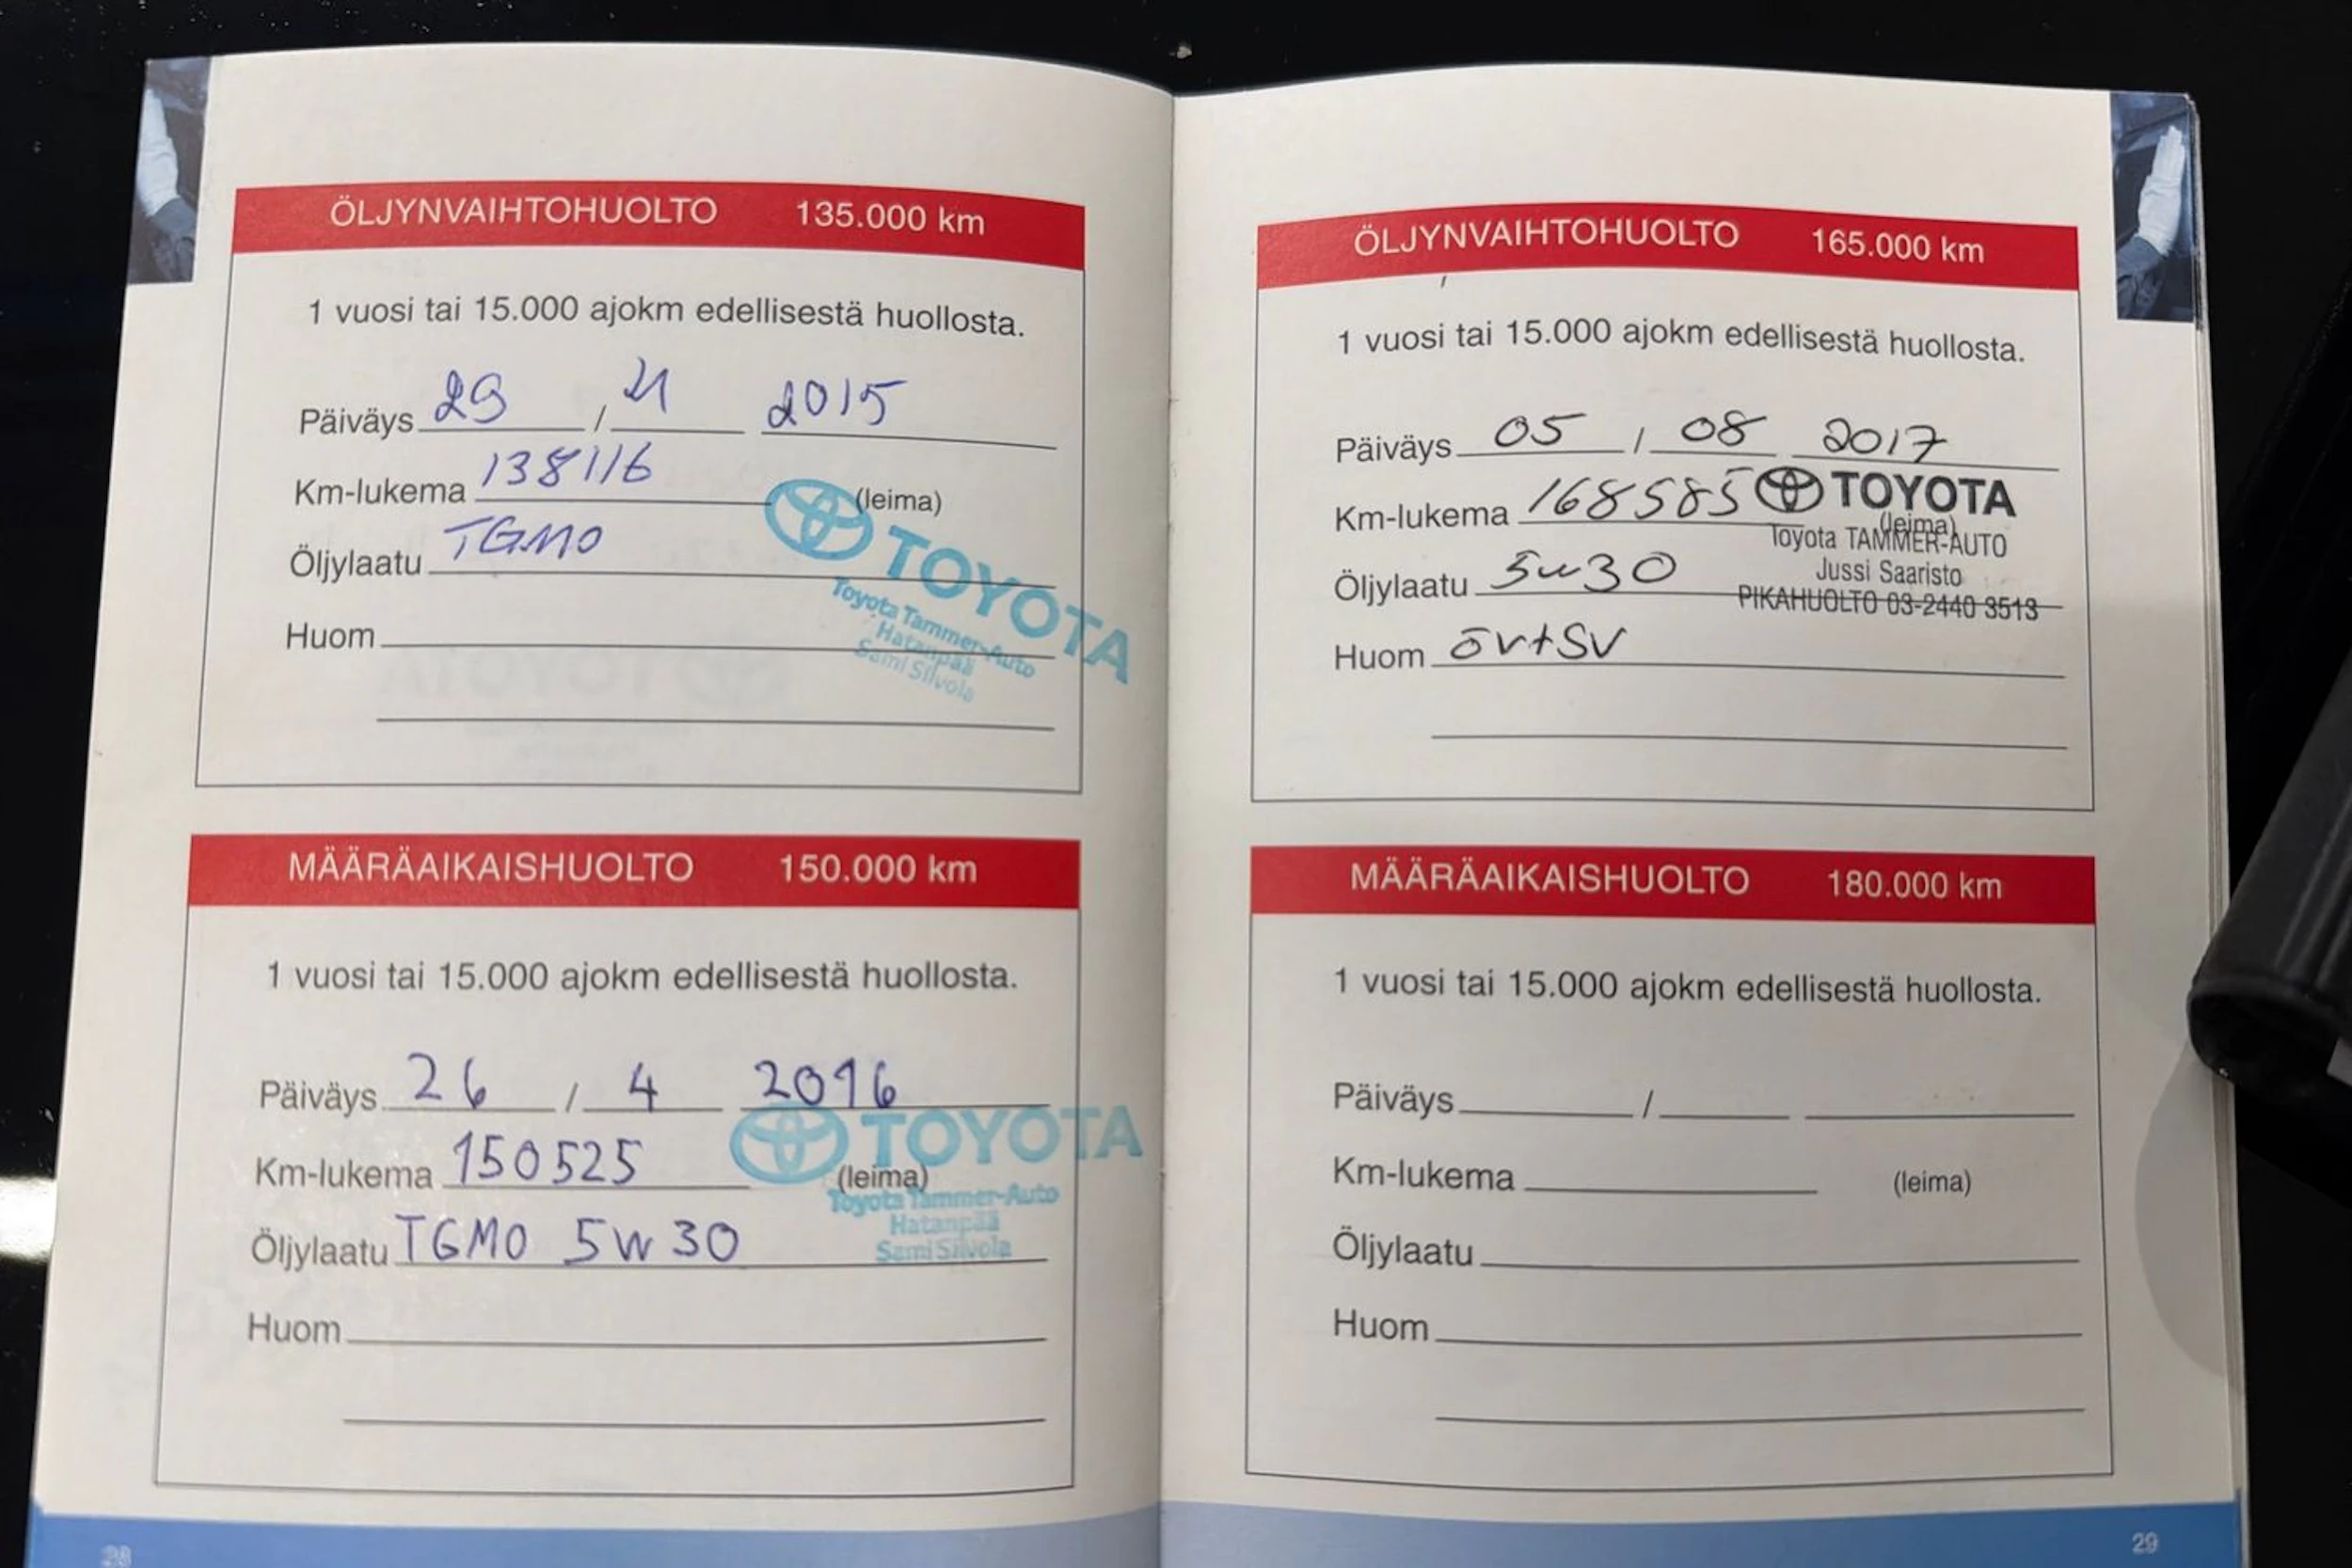 ÖLJYNVAIHTOHUOLTO 135.000 km
1 vuosi tai 15.000 ajokm edellisestä huollosta.
Päiväys 29 / 4 2015
Km-lukema 138116 (leima)
Öljylaatu TGMO
TOYOTA
Toyota Tammer-Auto
Hatanpää
Sami Silvola
Huom
MÄÄRÄAIKAISHUOLTO 150.000 km
1 vuosi tai 15.000 ajokm edellisestä huollosta.
Päiväys 26 / 4 2016
TOYOTA
Km-lukema 150525 (leima)
Toyota Tammer-Auto
Hatanpää
Sami Silvola
Öljylaatu TGMO 5W30
Huom
28
ÖLJYNVAIHTOHUOLTO 165.000 km
1 vuosi tai 15.000 ajokm edellisestä huollosta.
Päiväys 05 / 08 2017
TOYOTA
Km-lukema 168585 (leima)
Toyota TAMMER-AUTO
Jussi Saaristo
PIKAHUOLTO 03-2440 3513
Öljylaatu 5w30
Huom öv+SV
MÄÄRÄAIKAISHUOLTO 180.000 km
1 vuosi tai 15.000 ajokm edellisestä huollosta.
Päiväys /
Km-lukema (leima)
Öljylaatu
Huom
29